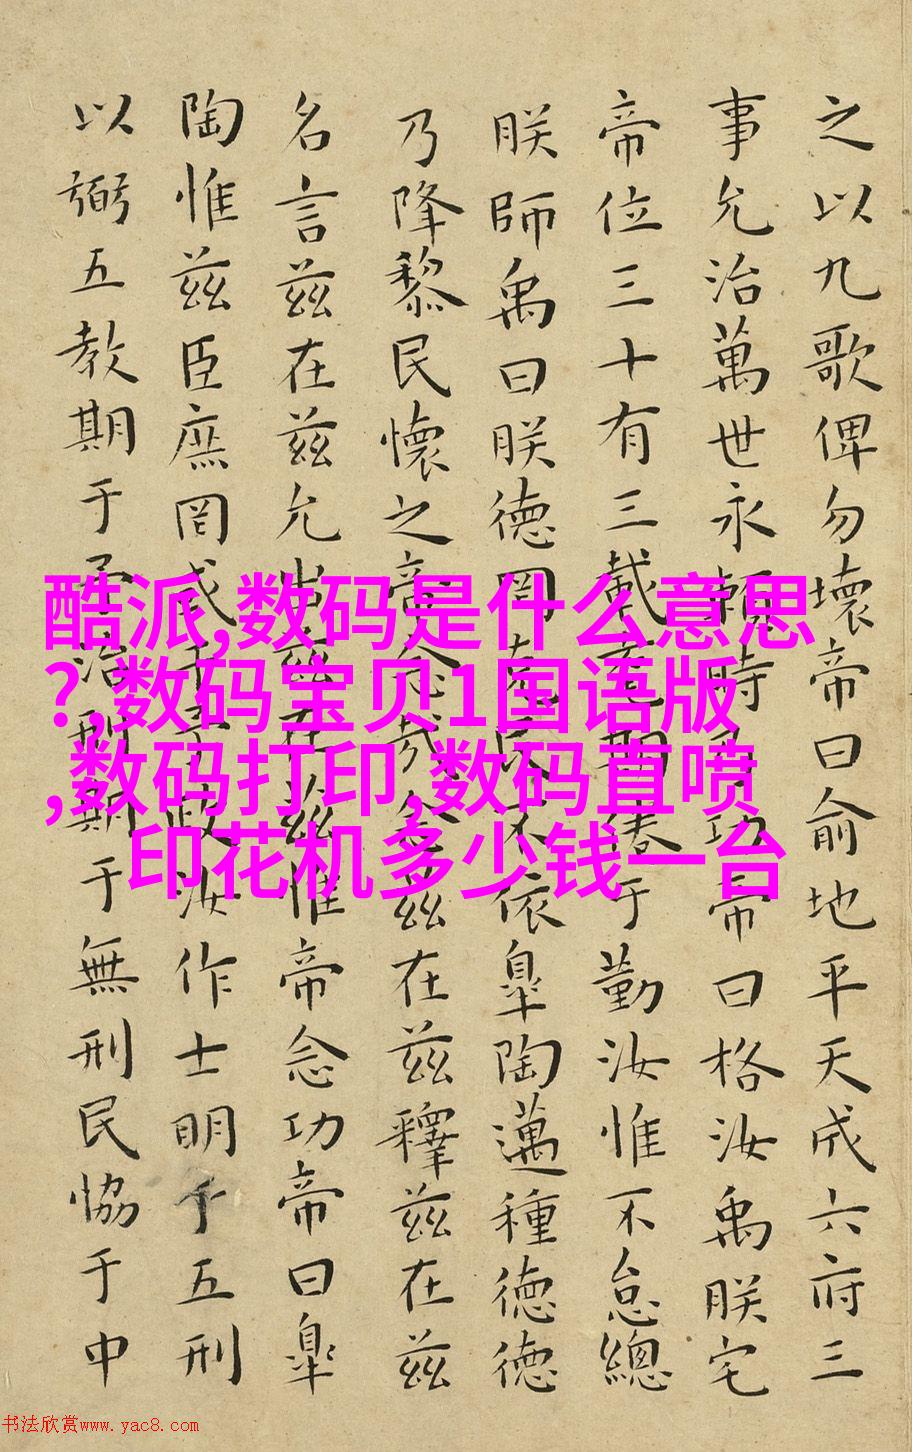 之以九歌俾勿壞帝曰俞地平天成六府三
事允治萬世永賴時乃功帝曰格汝禹朕宅
帝位三十有三載耄期倦于勤汝惟不怠總
朕師禹曰朕德罔克民不依皐陶邁種德德
乃降黎民懷之帝念哉念茲在茲釋茲在茲
名言茲在茲允出茲在茲惟帝念功帝曰皐
陶惟茲臣庶罔或干予政汝作士明于五刑
以弼五教期于予治刑期于無刑民恊于中
酷派,数码是什么意思
?,数码宝贝1国语版
,数码打印,数码直喷
印花机多少钱一台
书法欣赏www.yac8.com